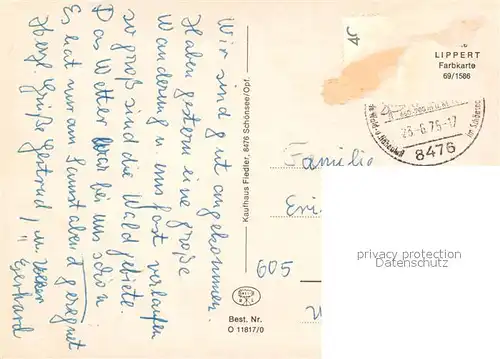 Wir sind gut angekommen.
Haben gestern eine große
Wanderung u. uns fast verlaufen
so groß sind die Waldgebiete.
Das Wetter war bei uns schön
Es hat nur am Samstabend geregnet
Herzl. Grüße Gertrud, u.
" Gerhard
Kaufhaus Fiedler, 8476 Schönsee/Opf.
LIPPERT
Farbkarte
69/1586
23-6.75-17
8476
Familie
Eri
605
Best. Nr.
O 11817/0
privacy protection
Datenschutz